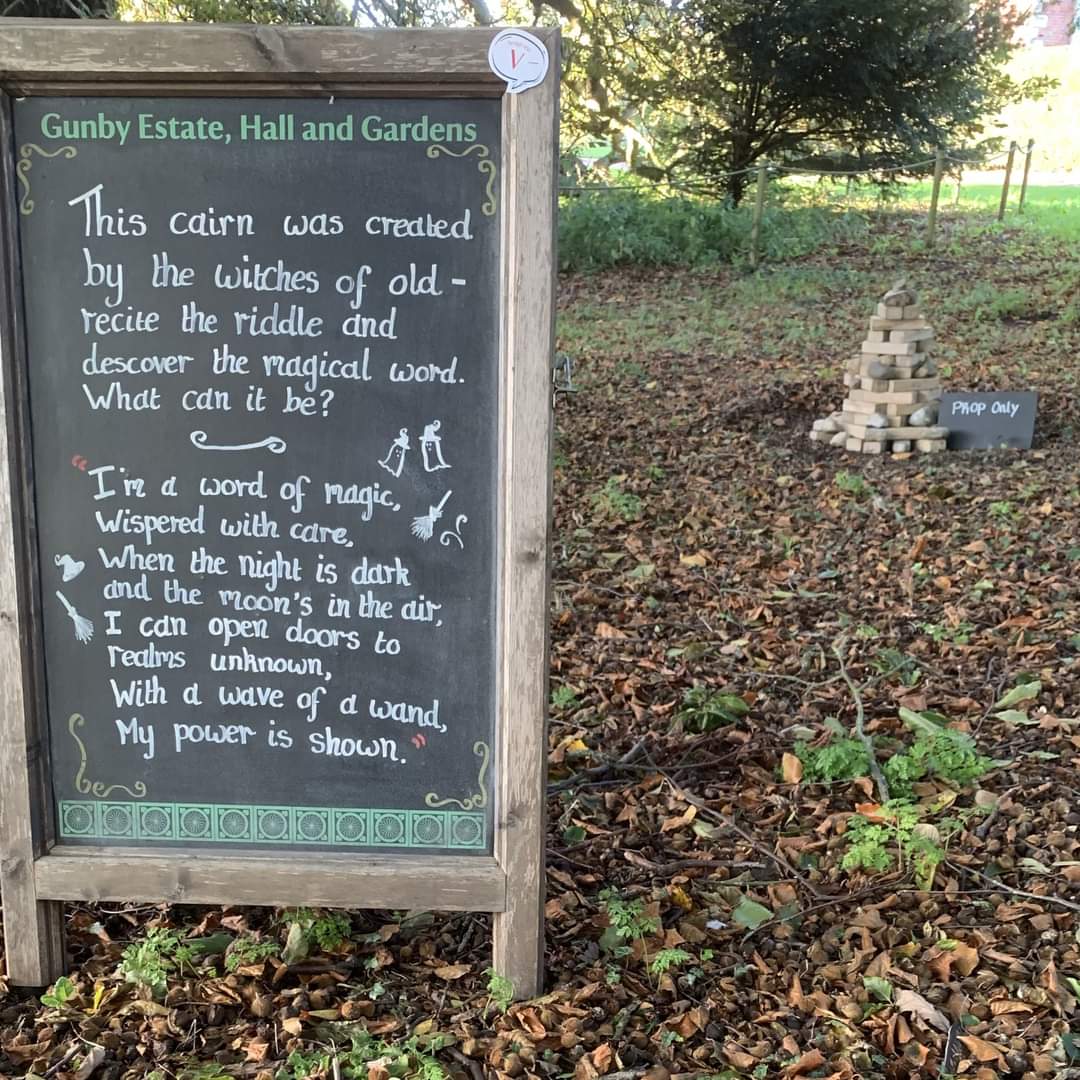 V
Gunby Estate, Hall and Gardens
This cairn was created
by the witches of old -
recite the riddle and
descover the magical word.
What can it be?
"I'm a word of magic,
Wispered with care,
When the night is dark
and the moon's in the air,
I can open doors to
realms unknown,
With a wave of a wand,
My power is shown."
Prop Only